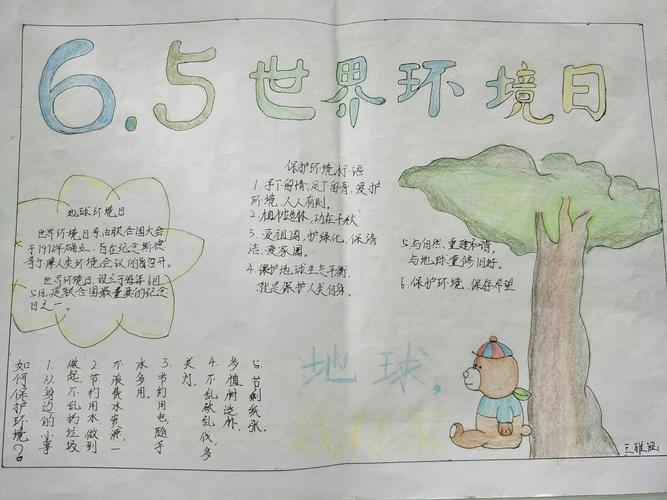 6.5世界环境日
地球环境日
世界环境日是由联合国大会
于1972年确立,旨在纪念斯德
哥尔摩人类环境会议的召开。
世界环境日,设立于每年6月
5日,是联合国最重要的纪念
日之一。
保护环境标语
1.手下留情,足下留青,爱护
环境,人人有责。
2.植树造林,功在千秋
3.爱祖国,护绿化,保清
洁,爱家园。
4.保护地球生态平衡,
就是保护人类自身。
5.与自然,重建和谐,
与地球重修旧好。
6.保护环境,保存希望
如何保护环境?
1.从身边的小事
做起,不乱扔垃圾
2.节约用水做到
不浪费水资源,一
水多用。
3.节约用电,随手
关灯。
4.不乱砍乱伐,多
多植树造林。
5.节制纸张。
地球,
我的家